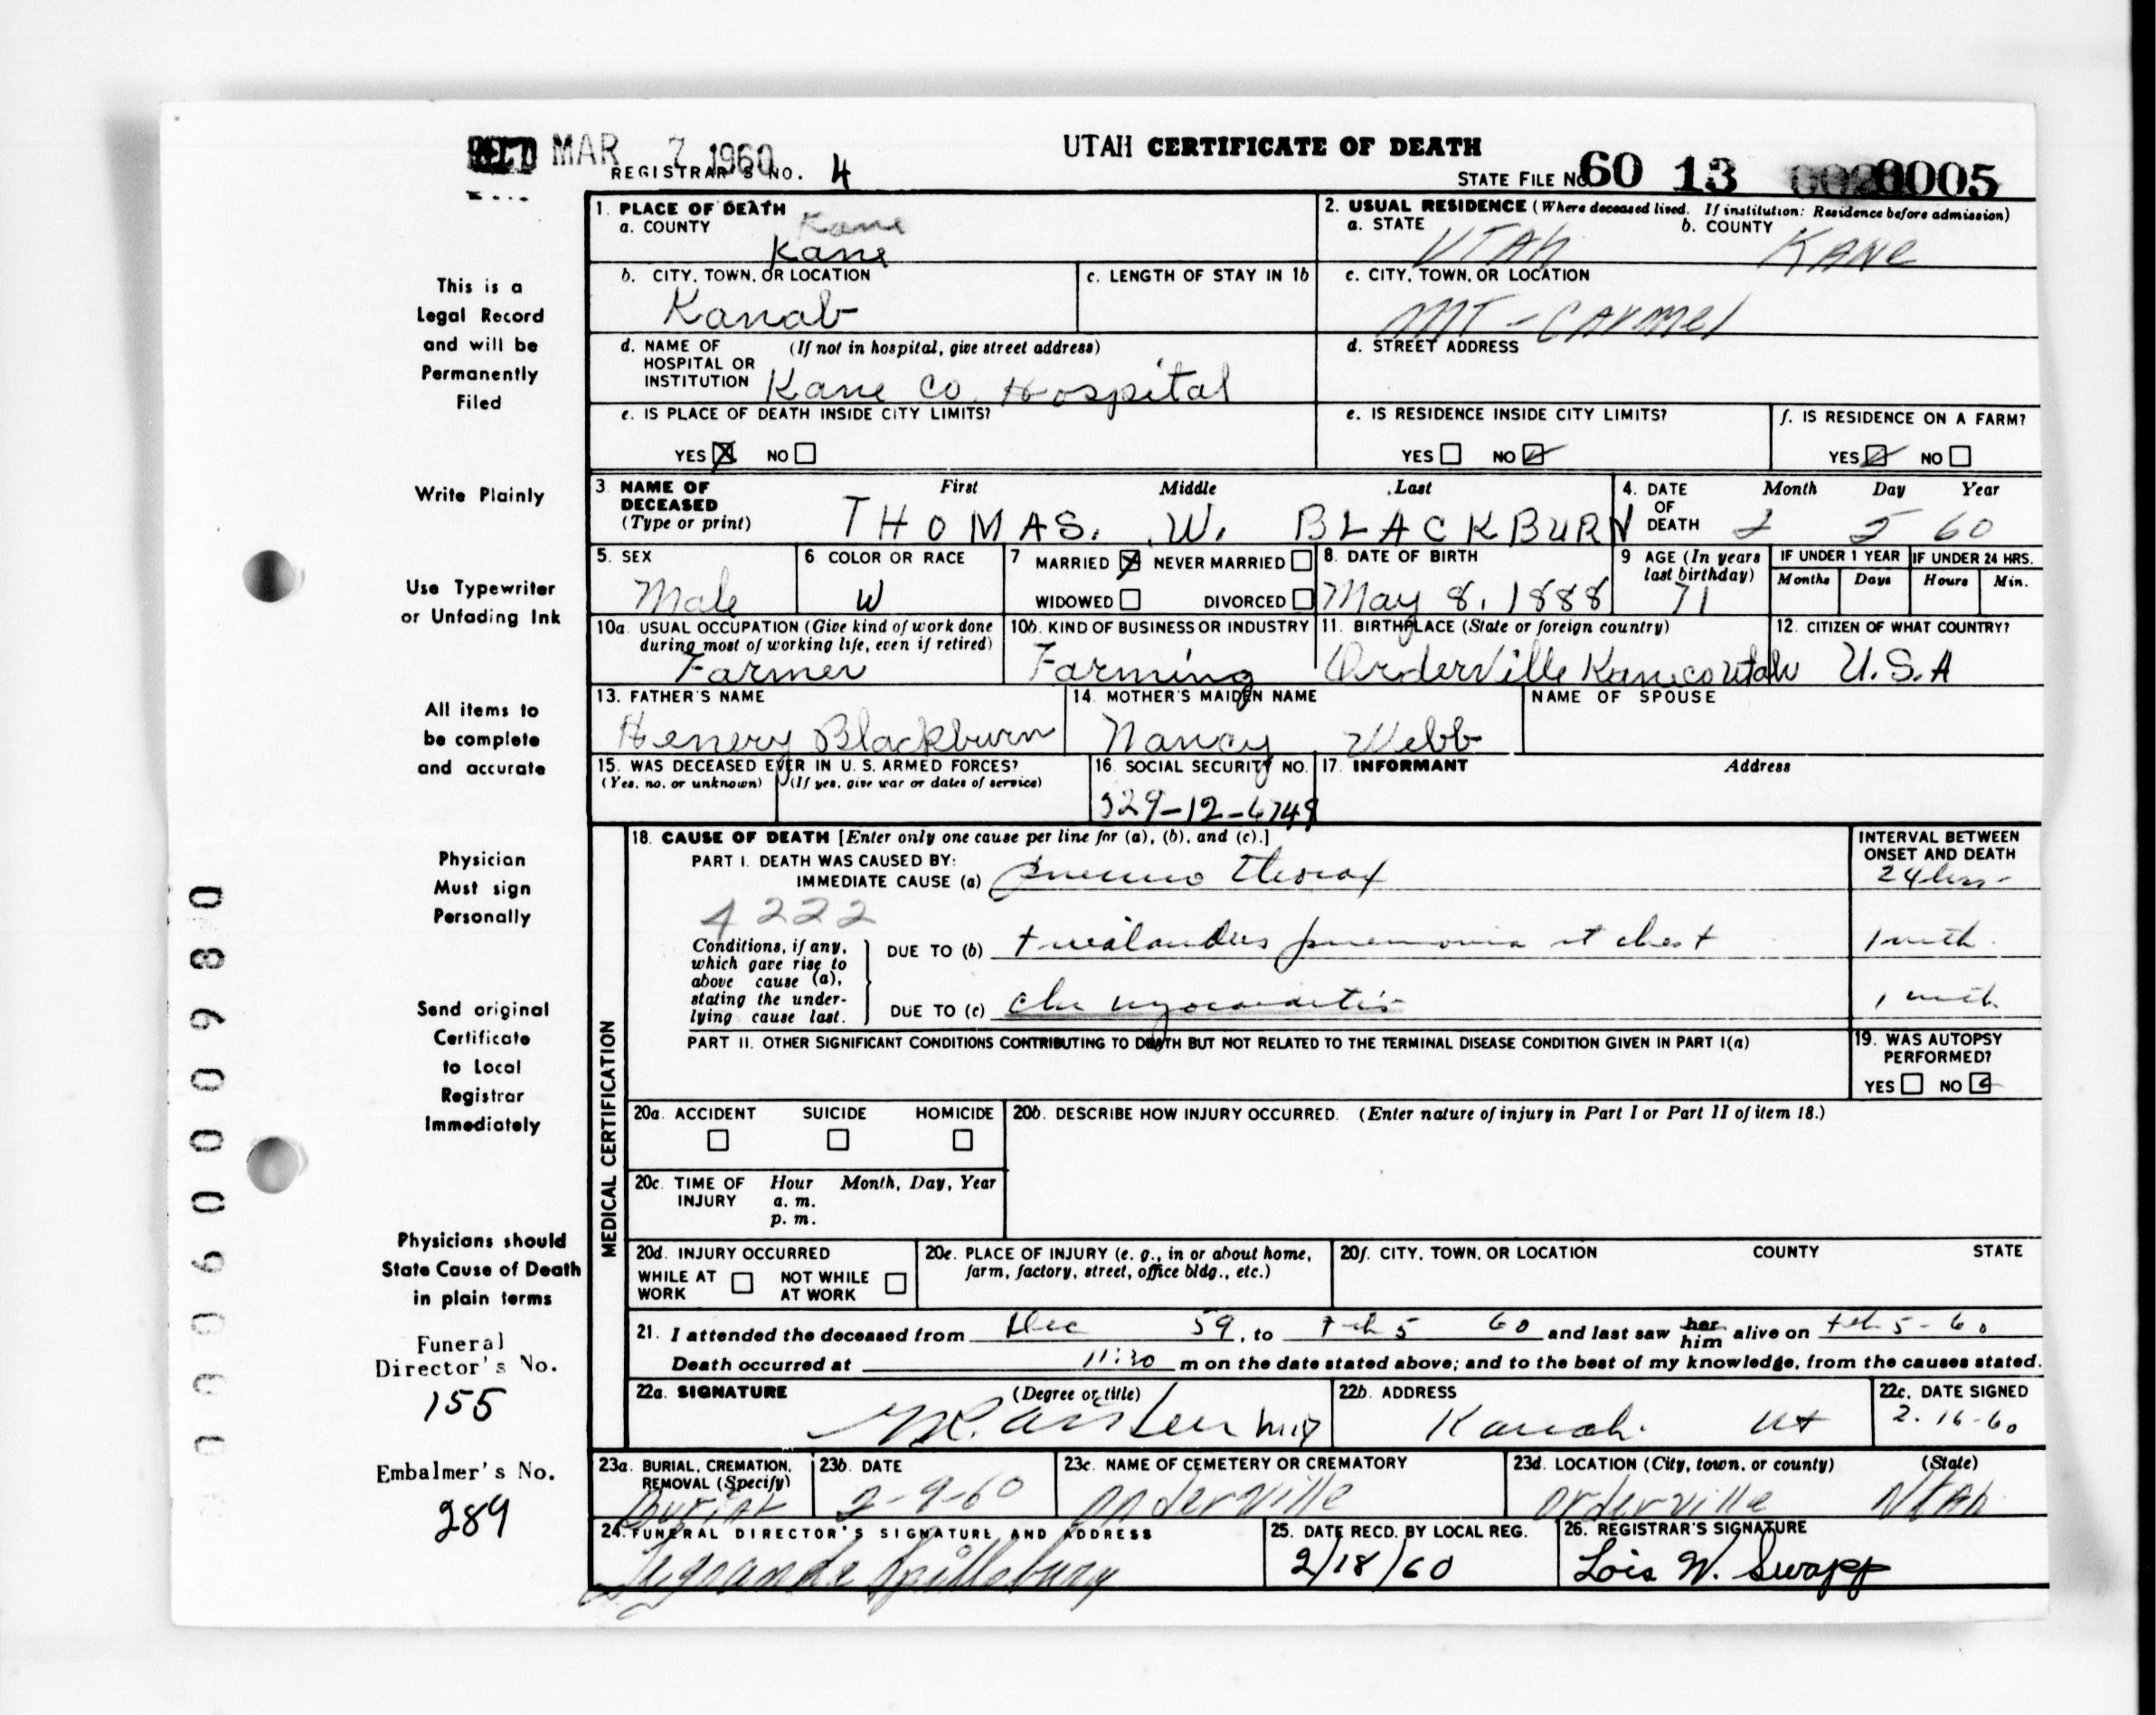 REC'D MAR 7 1960
UTAH CERTIFICATE OF DEATH
REGISTRAR'S NO. 4
STATE FILE NO. 60 13 0005
1. PLACE OF DEATH
a. COUNTY Kane
Kane
2. USUAL RESIDENCE (Where deceased lived. If institution: Residence before admission)
a. STATE UTAH b. COUNTY KANE
b. CITY, TOWN, OR LOCATION
Kanab
c. LENGTH OF STAY IN 1b
c. CITY, TOWN, OR LOCATION
MT - CArmel
d. NAME OF HOSPITAL OR INSTITUTION (If not in hospital, give street address)
Kane Co. Hospital
d. STREET ADDRESS
e. IS PLACE OF DEATH INSIDE CITY LIMITS?
YES NO
e. IS RESIDENCE INSIDE CITY LIMITS?
YES NO
f. IS RESIDENCE ON A FARM?
YES NO
3. NAME OF DECEASED (Type or print) First Middle Last
THOMAS. W. BLACKBURN
4. DATE OF DEATH Month Day Year
2 5 60
5. SEX
Male
6 COLOR OR RACE
W
7 MARRIED NEVER MARRIED
WIDOWED DIVORCED
8. DATE OF BIRTH
May 8, 1888
9 AGE (In years last birthday)
71
IF UNDER 1 YEAR
Months Days
IF UNDER 24 HRS.
Hours Min.
10a. USUAL OCCUPATION (Give kind of work done during most of working life, even if retired)
Farmer
10b. KIND OF BUSINESS OR INDUSTRY
Farming
11. BIRTHPLACE (State or foreign country)
Orderville Kane co Utah
12. CITIZEN OF WHAT COUNTRY?
U.S.A
13. FATHER'S NAME
Henery Blackburn
14. MOTHER'S MAIDEN NAME
Nancy Webb
NAME OF SPOUSE
15. WAS DECEASED EVER IN U. S. ARMED FORCES?
(Yes, no, or unknown) (If yes, give war or dates of service)
16. SOCIAL SECURITY NO.
529-12-6749
17. INFORMANT Address
MEDICAL CERTIFICATION
18. CAUSE OF DEATH [Enter only one cause per line for (a), (b), and (c).]
PART I. DEATH WAS CAUSED BY:
IMMEDIATE CAUSE (a) pneumo thorax
INTERVAL BETWEEN ONSET AND DEATH
24 hrs
4222
Conditions, if any, which gave rise to above cause (a), stating the underlying cause last.
DUE TO (b) pneumonia chest
1 mth
DUE TO (c) chr myocarditis
1 mth
PART II. OTHER SIGNIFICANT CONDITIONS CONTRIBUTING TO DEATH BUT NOT RELATED TO THE TERMINAL DISEASE CONDITION GIVEN IN PART I(a)
19. WAS AUTOPSY PERFORMED?
YES NO
20a. ACCIDENT SUICIDE HOMICIDE
20b. DESCRIBE HOW INJURY OCCURRED. (Enter nature of injury in Part I or Part II of item 18.)
20c. TIME OF INJURY Hour Month, Day, Year
a. m.
p. m.
20d. INJURY OCCURRED
WHILE AT WORK NOT WHILE AT WORK
20e. PLACE OF INJURY (e. g., in or about home, farm, factory, street, office bldg., etc.)
20f. CITY, TOWN, OR LOCATION COUNTY STATE
21. I attended the deceased from Dec 59, to Feb 5 60 and last saw her him alive on Feb 5 - 60
Death occurred at 11:30 m on the date stated above; and to the best of my knowledge, from the causes stated.
22a. SIGNATURE (Degree or title)
MD
22b. ADDRESS
Kanab. Ut
22c. DATE SIGNED
2-16-60
23a. BURIAL, CREMATION, REMOVAL (Specify)
Burial
23b. DATE
2-9-60
23c. NAME OF CEMETERY OR CREMATORY
Orderville
23d. LOCATION (City, town, or county) (State)
Orderville Utah
24. FUNERAL DIRECTOR'S SIGNATURE AND ADDRESS
Legrande Spillsbury
25. DATE RECD. BY LOCAL REG.
2/18/60
26. REGISTRAR'S SIGNATURE
Lois W. Swapp
This is a
Legal Record
and will be
Permanently
Filed
Write Plainly
Use Typewriter
or Unfading Ink
All items to
be complete
and accurate
Physician
Must sign
Personally
Send original
Certificate
to Local
Registrar
Immediately
Physicians should
State Cause of Death
in plain terms
Funeral
Director's No.
155
Embalmer's No.
289